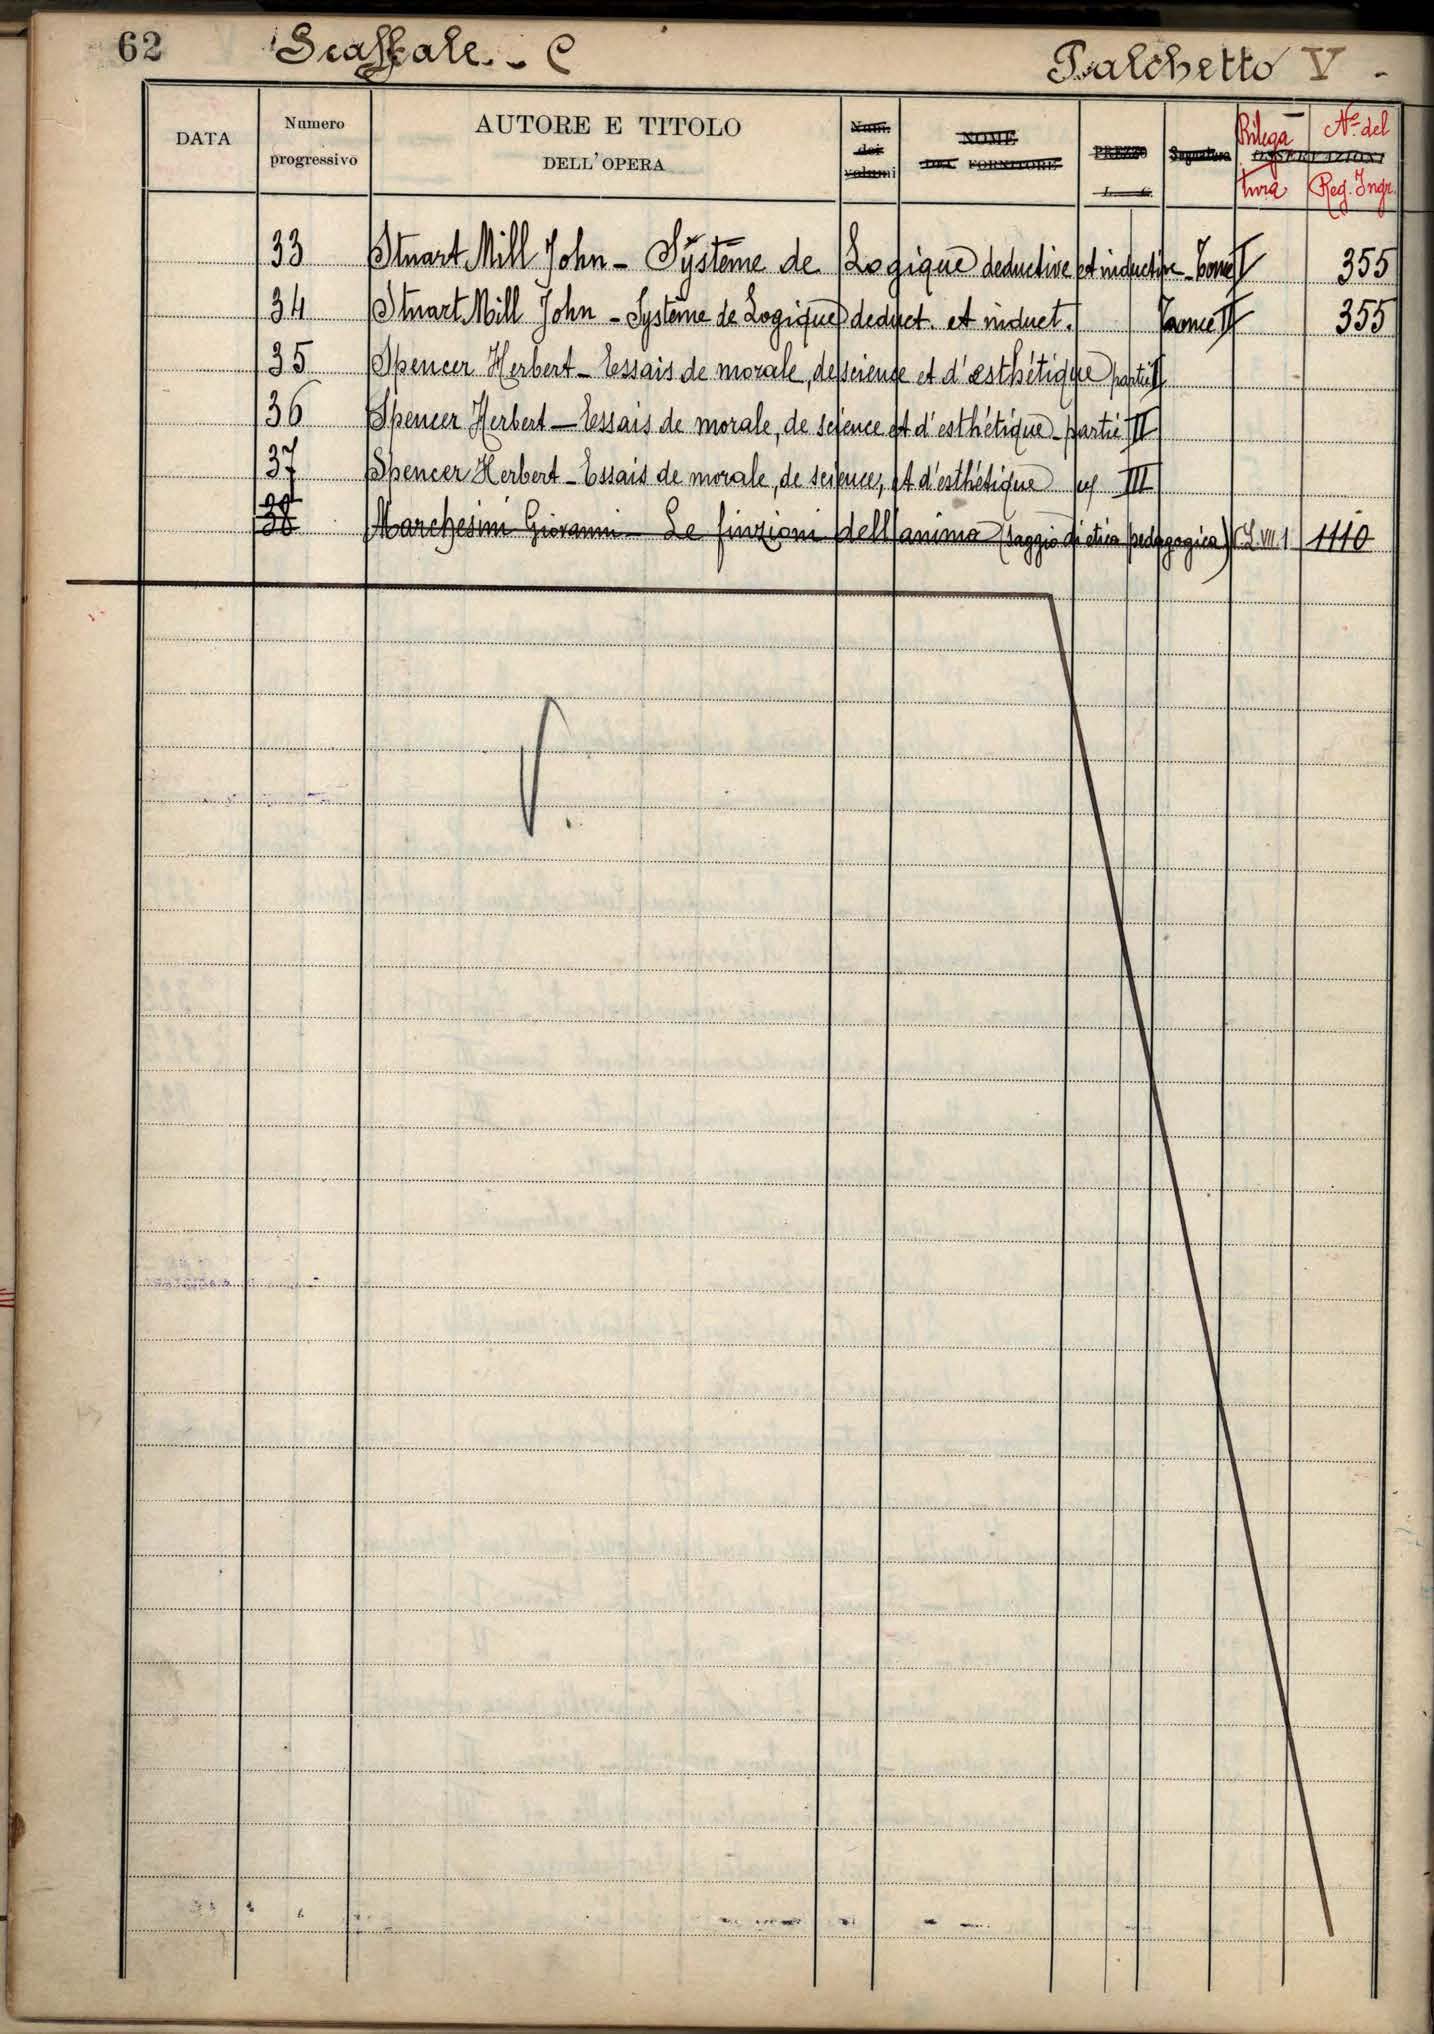 62 Scaffale. - C Palchetto V -
DATA Numero progressivo AUTORE E TITOLO DELL'OPERA Num. dei volumi NOME DEL FORNITORE PREZZO L. C. Segnatura OSSERVAZIONI Rilegatura N.º del Reg. Ingr.
33 Stuart Mill John - Système de Logique deductive et inductive - Tome I 355
34 Stuart Mill John - Système de Logique deduct. et induct. Tome II 355
35 Spencer Herbert - Essais de morale, de science et d'esthétique partie I
36 Spencer Herbert - Essais de morale, de science et d'esthétique - partie II
37 Spencer Herbert - Essais de morale, de science, et d'esthétique III
38 Marchesini Giovanni - Le finzioni dell'anima (saggio di etica pedagogica) C.L.VII.1 1110